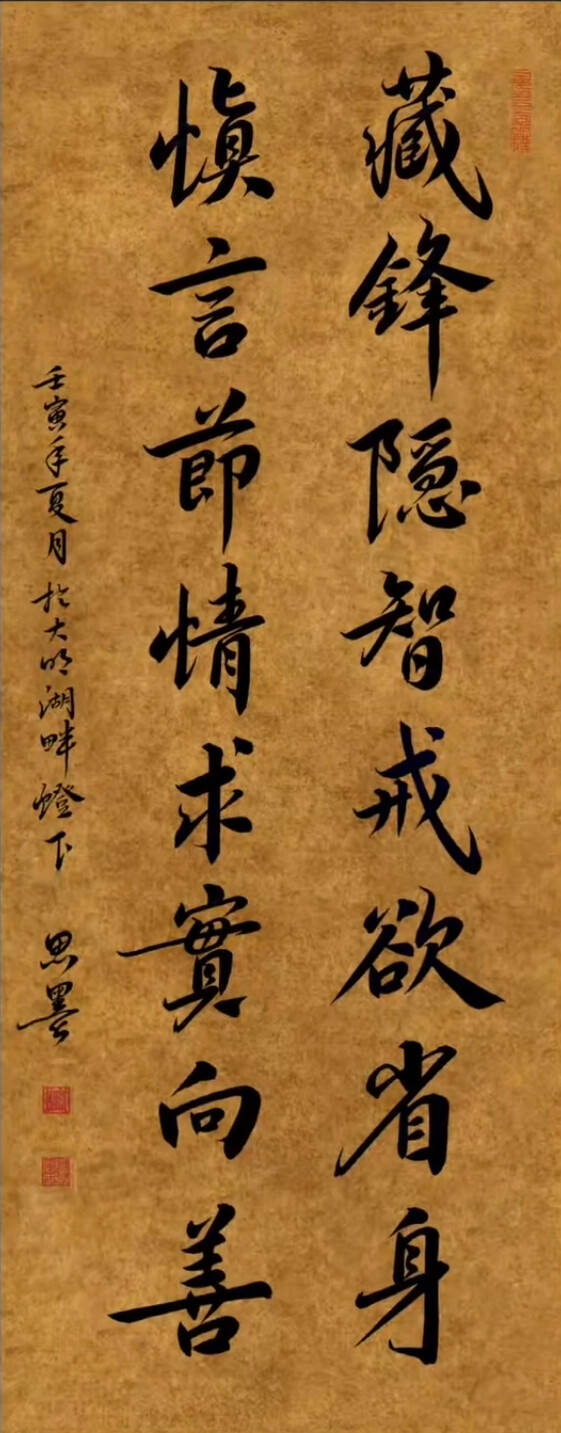 藏鋒隱智戒欲省身
慎言節情求實向善
壬寅年夏月於大明湖畔燈下
思墨